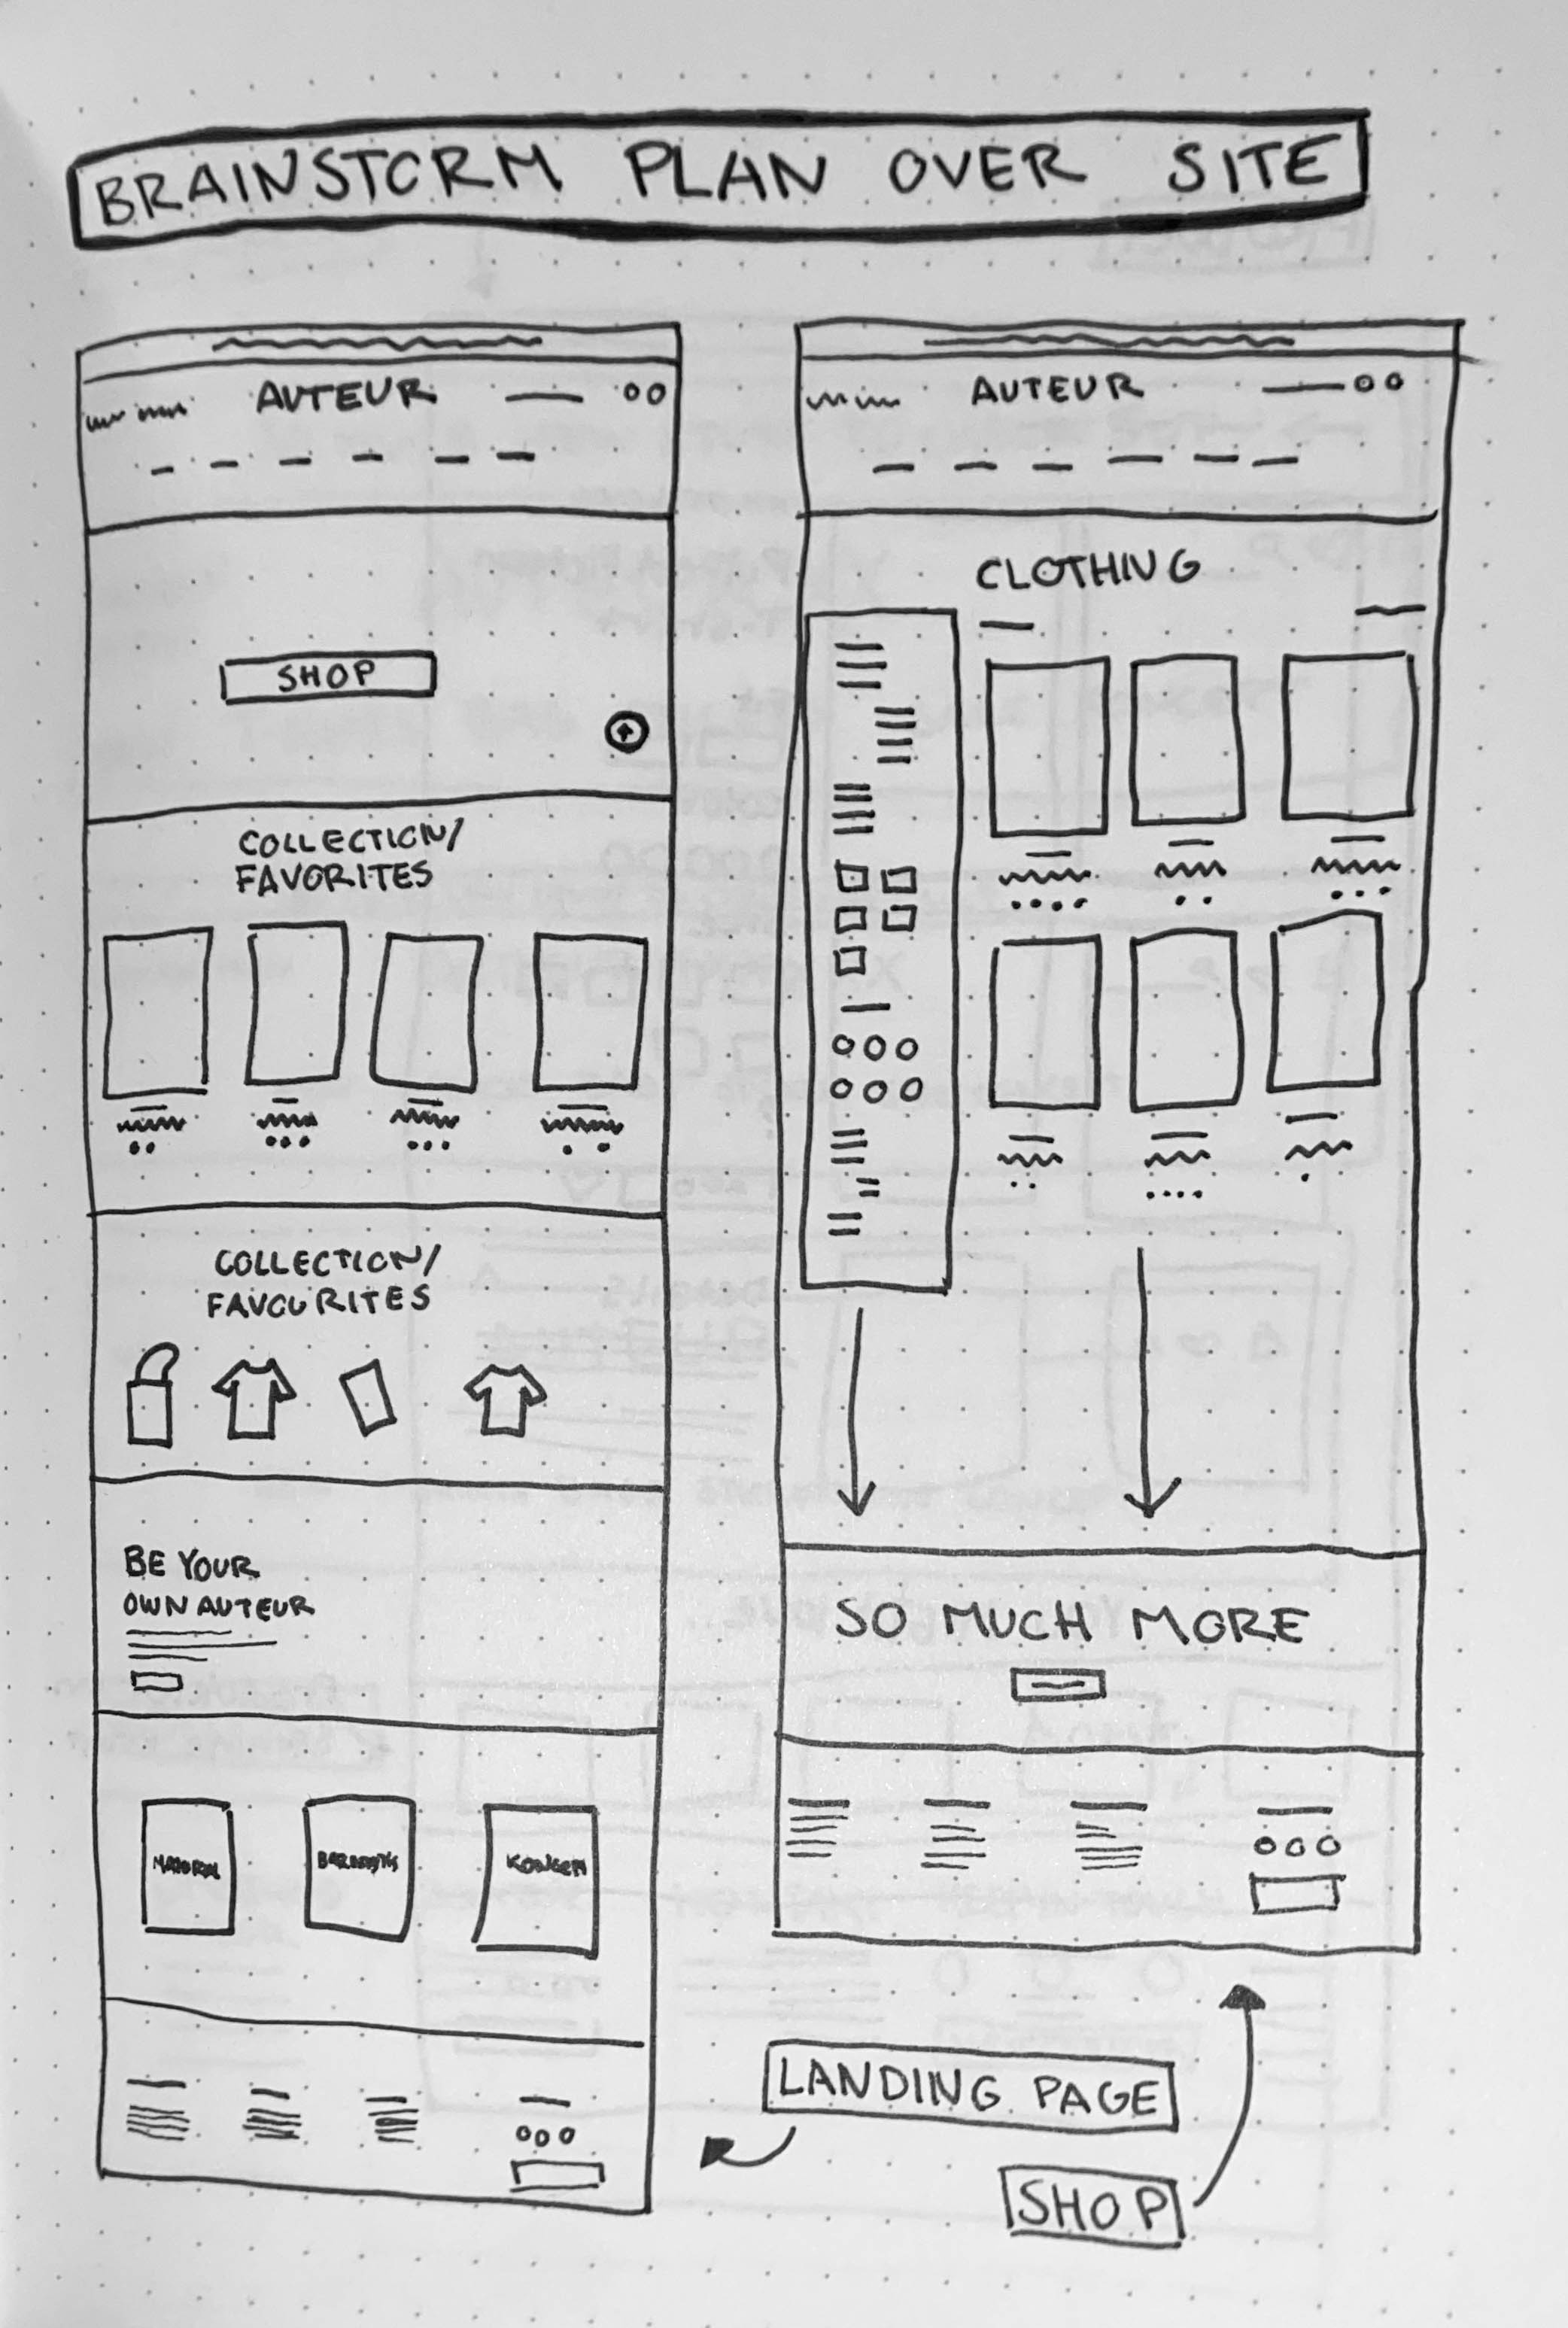 BRAINSTORM PLAN OVER SITE
AUTEUR
SHOP
COLLECTION/
FAVORITES
COLLECTION/
FAVOURITES
BE YOUR
OWN AUTEUR
AUTEUR
CLOTHING
SO MUCH MORE
LANDING PAGE
SHOP